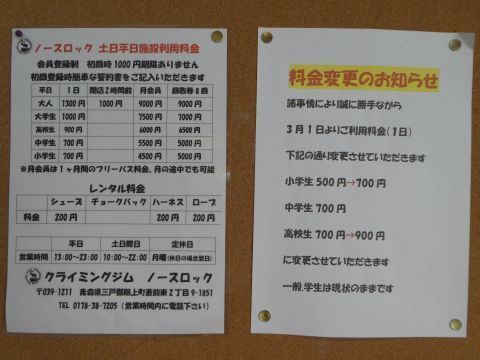 ノースロック 土日平日施設利用料金
会員登録制 初回時1000円期限ありません
初回登録時簡単な誓約書をご記入いただきます
平日 1日 閉店2時間前 月会員 回数券8回
大人 1300円 1000円 9000円 9000円
大学生 1000円 7500円 7000円
高校生 900円 6000円 6500円
中学生 700円 5500円 5000円
小学生 700円 4500円 5000円
※月会員は1ヶ月間のフリーパス料金。月の途中でも可能
レンタル料金
シューズ チョークバック ハーネス ロープ
料金 200円 200円 200円
平日 土日祭日 定休日
営業時間 13:00~23:00 10:00~22:00 月曜(休日の場合翌日)
クライミングジム ノースロック
〒039-1211 青森県三戸郡階上町蒼前東2丁目9-1851
TEL 0178-38-7205 (営業時間内に電話下さい)
料金変更のお知らせ
諸事情により誠に勝手ながら
3月1日よりご利用料金(1日)
下記の通り変更させていただきます
小学生 500円→700円
中学生 700円
高校生 700円→900円
に変更させていただきます
一般、学生は現状のままです